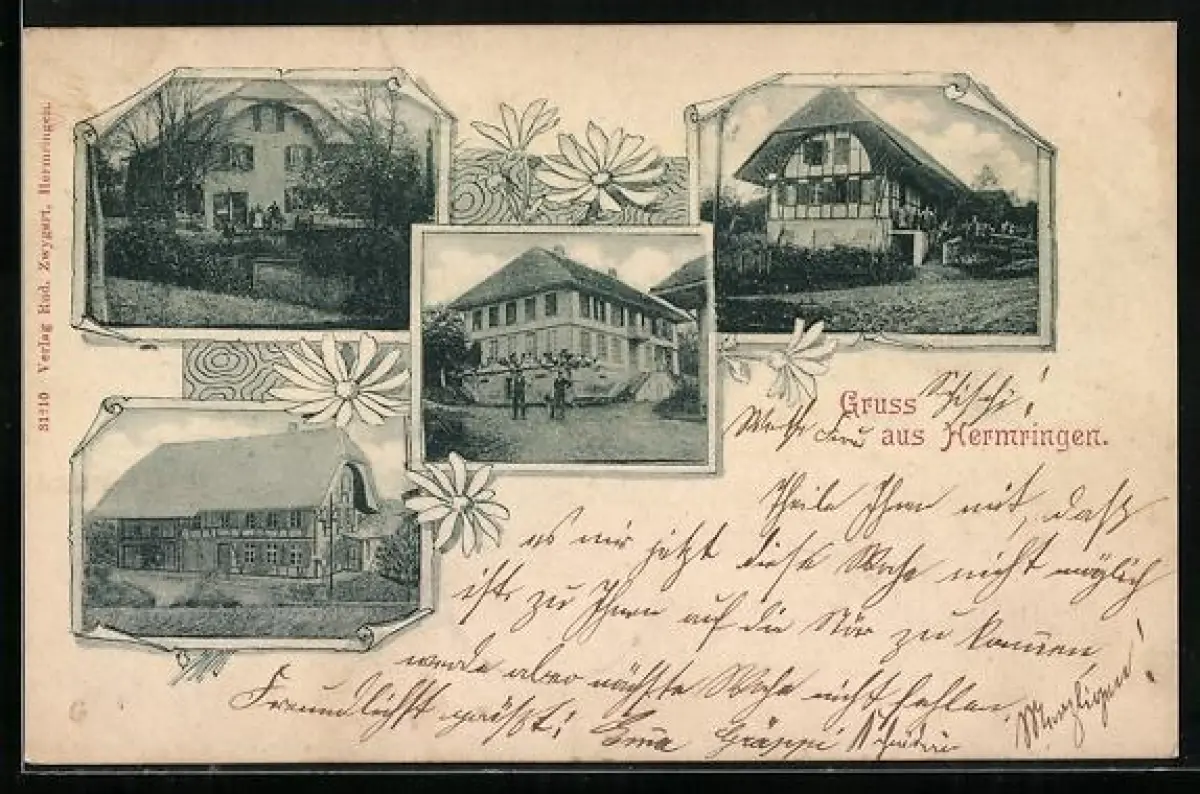 31210 Verlag Rud. Zwygart, Hermringen.
Gruss
aus Hermringen.
Theile Ihnen mit, daß
es mir jetzt diese Woche nicht möglich
ist, zu Ihnen auf die Stör zu kommen,
werde aber nächste Woche nicht fehlen.
Freundlichst grüßt!
Merzligen!